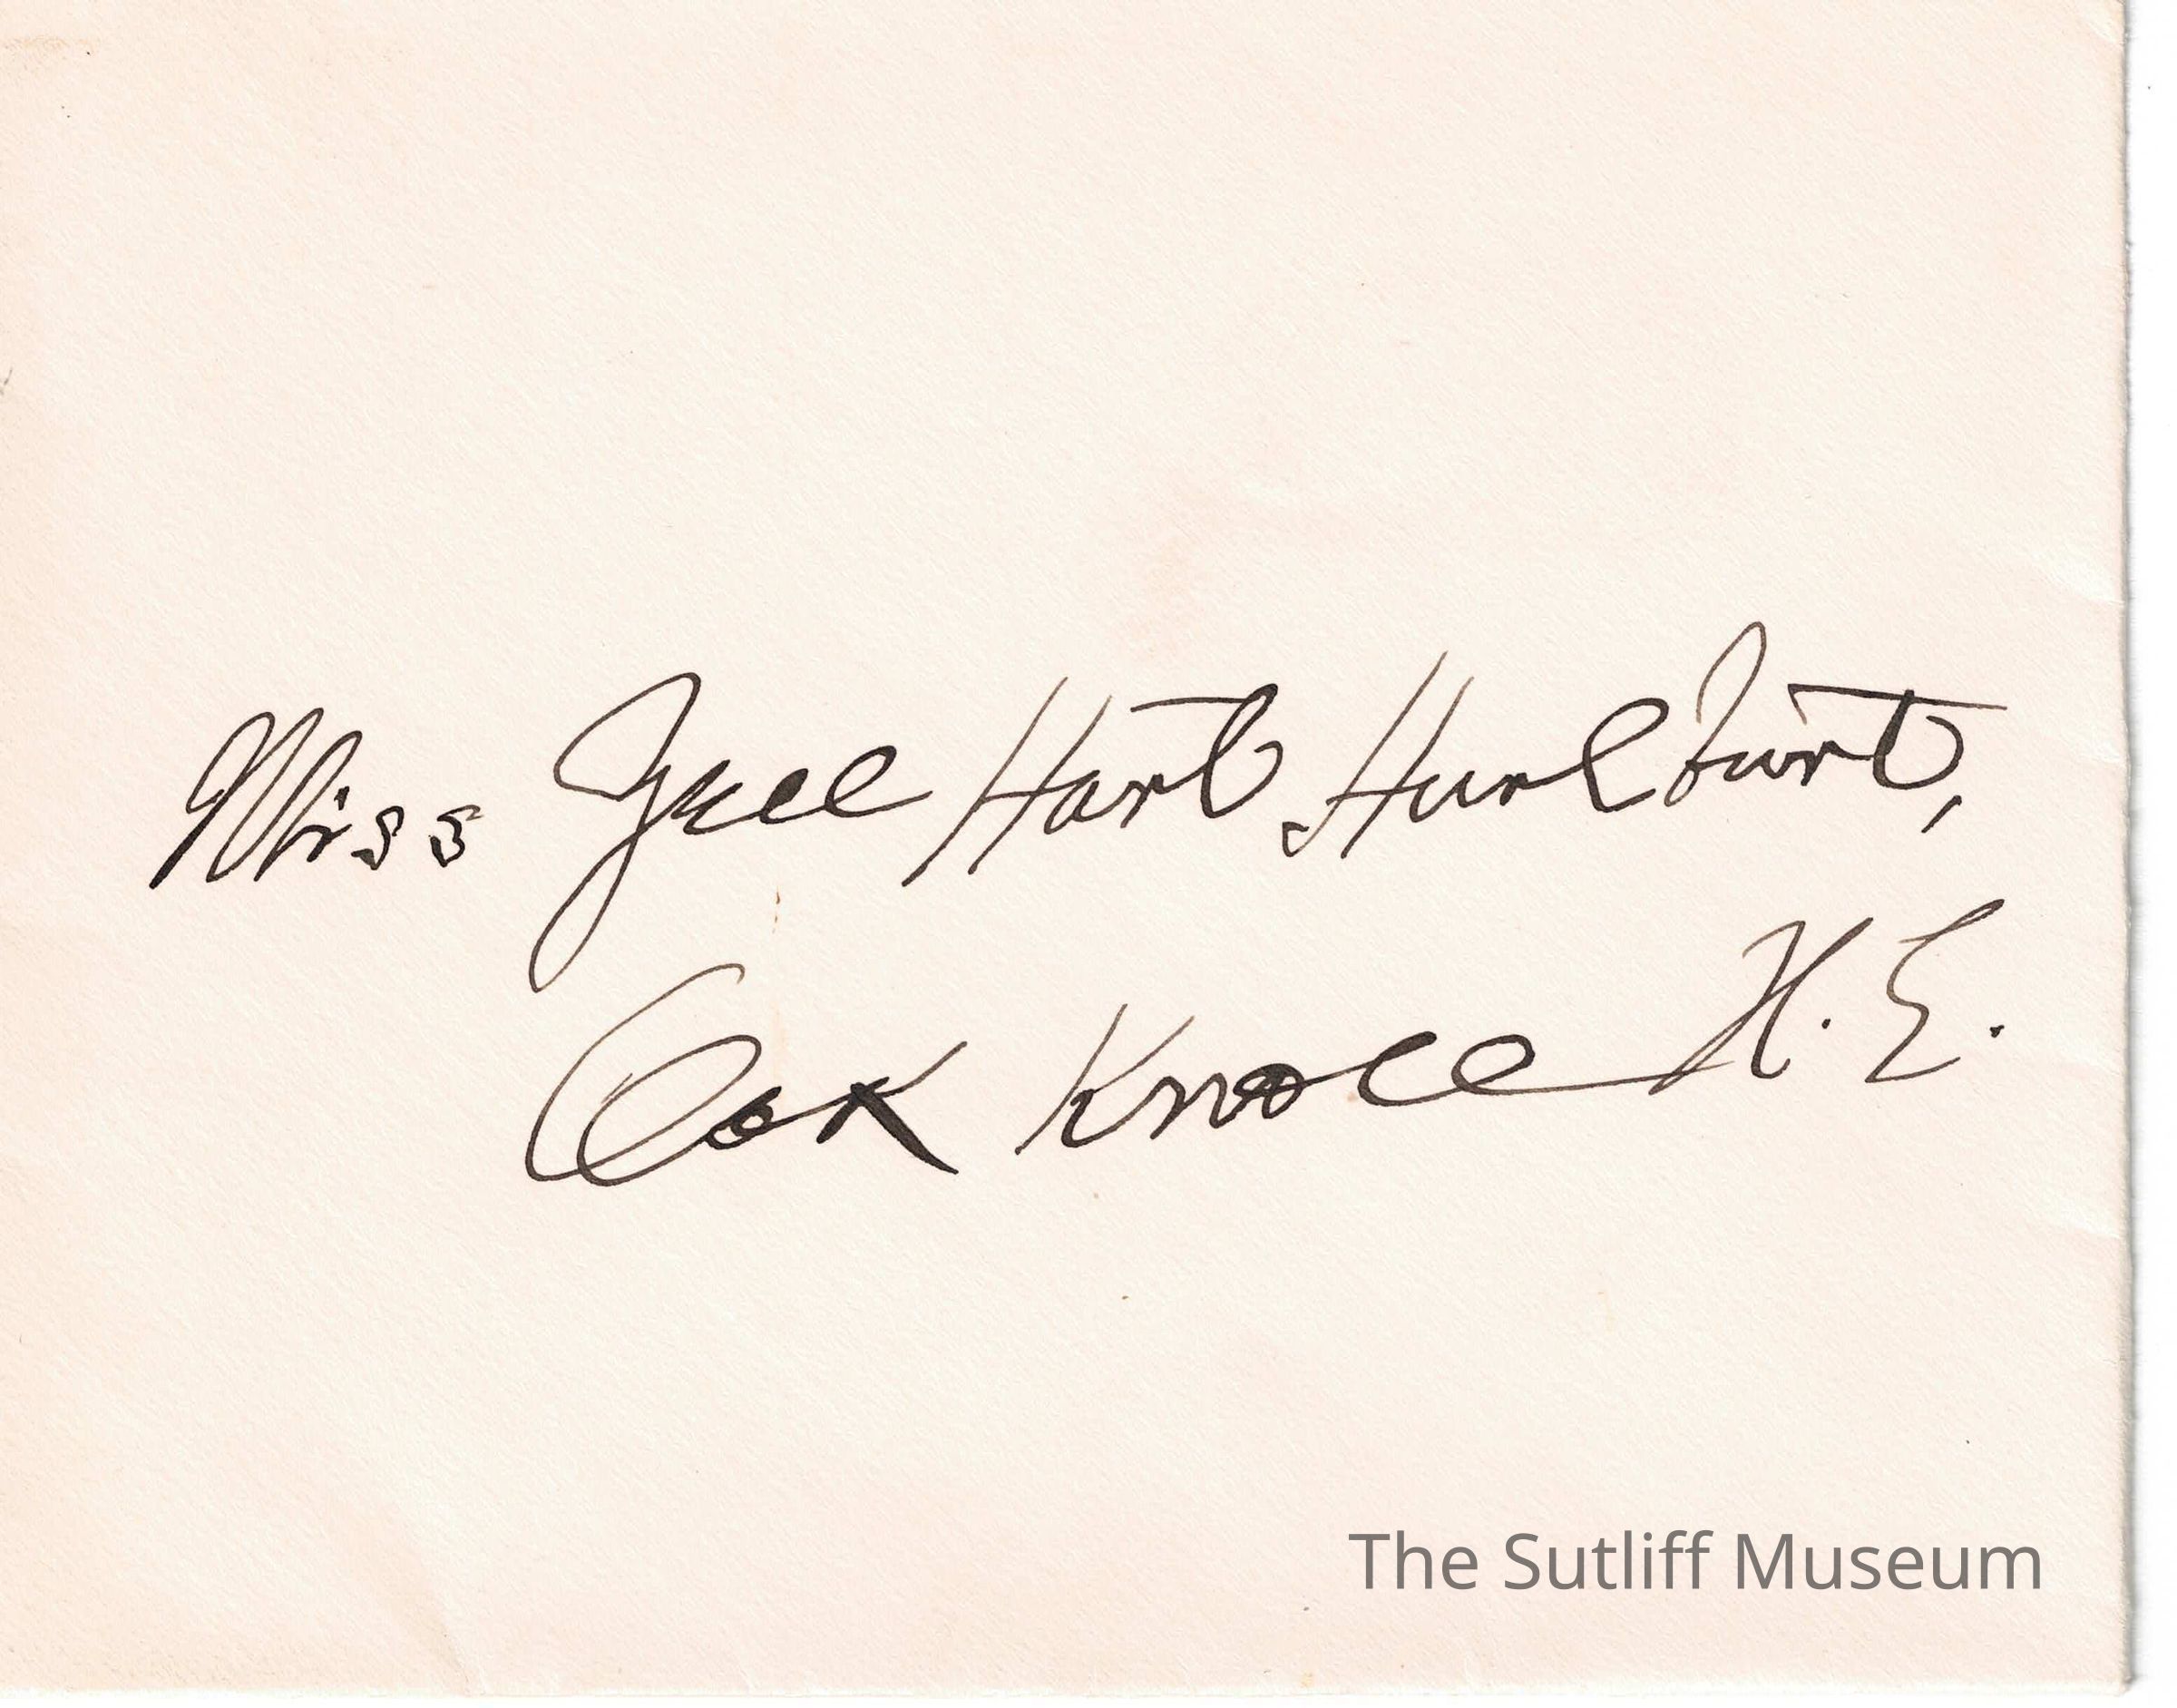 Miss Zell Hart Hurlburt,
Oak Knoll N.E.
The Sutliff Museum